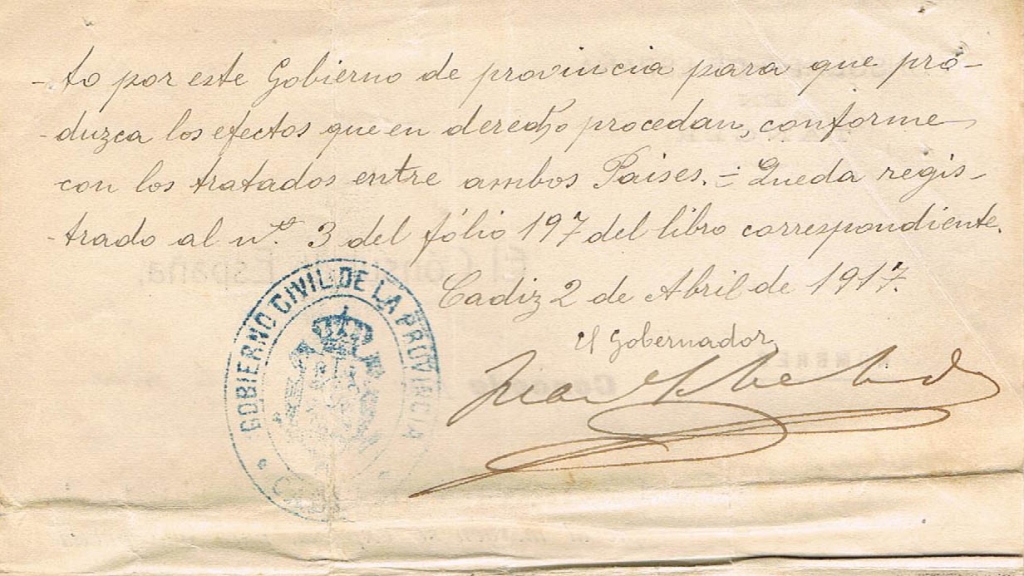 -to por este Gobierno de provincia para que pró-
-duzca los efectos que en derecho procedan, conforme
con los tratados entre ambos Paises. = Queda regis-
-trado al nº. 3 del fólio 197 del libro correspondiente.
Cadiz 2 de Abril de 1917.
El Gobernador
GOBIERNO CIVIL DE LA PROVINCIA
Juan